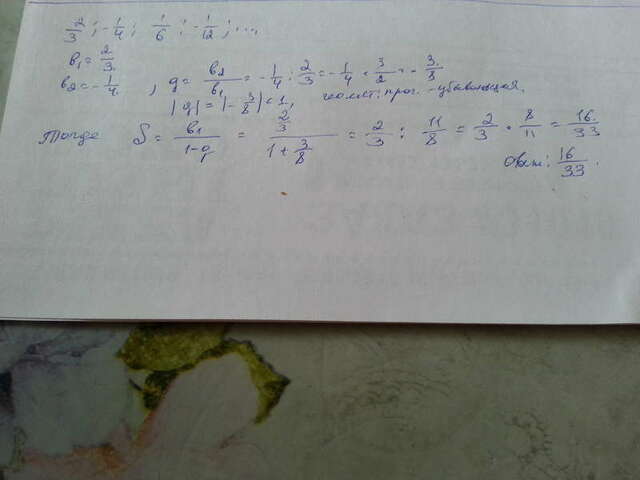 2/3; -1/4; 1/6; -1/12; ...,
b₁ = 2/3.
b₂ = -1/4. , q = b₂/b₁ = -1/4 : 2/3 = -1/4 · 3/2 = -3/8
|q| = |-3/8| < 1, геомет. прог. - убывающая.
Тогда S = b₁/(1-q) = (2/3)/(1+3/8) = 2/3 : 11/8 = 2/3 · 8/11 = 16/33
Ответ: 16/33.